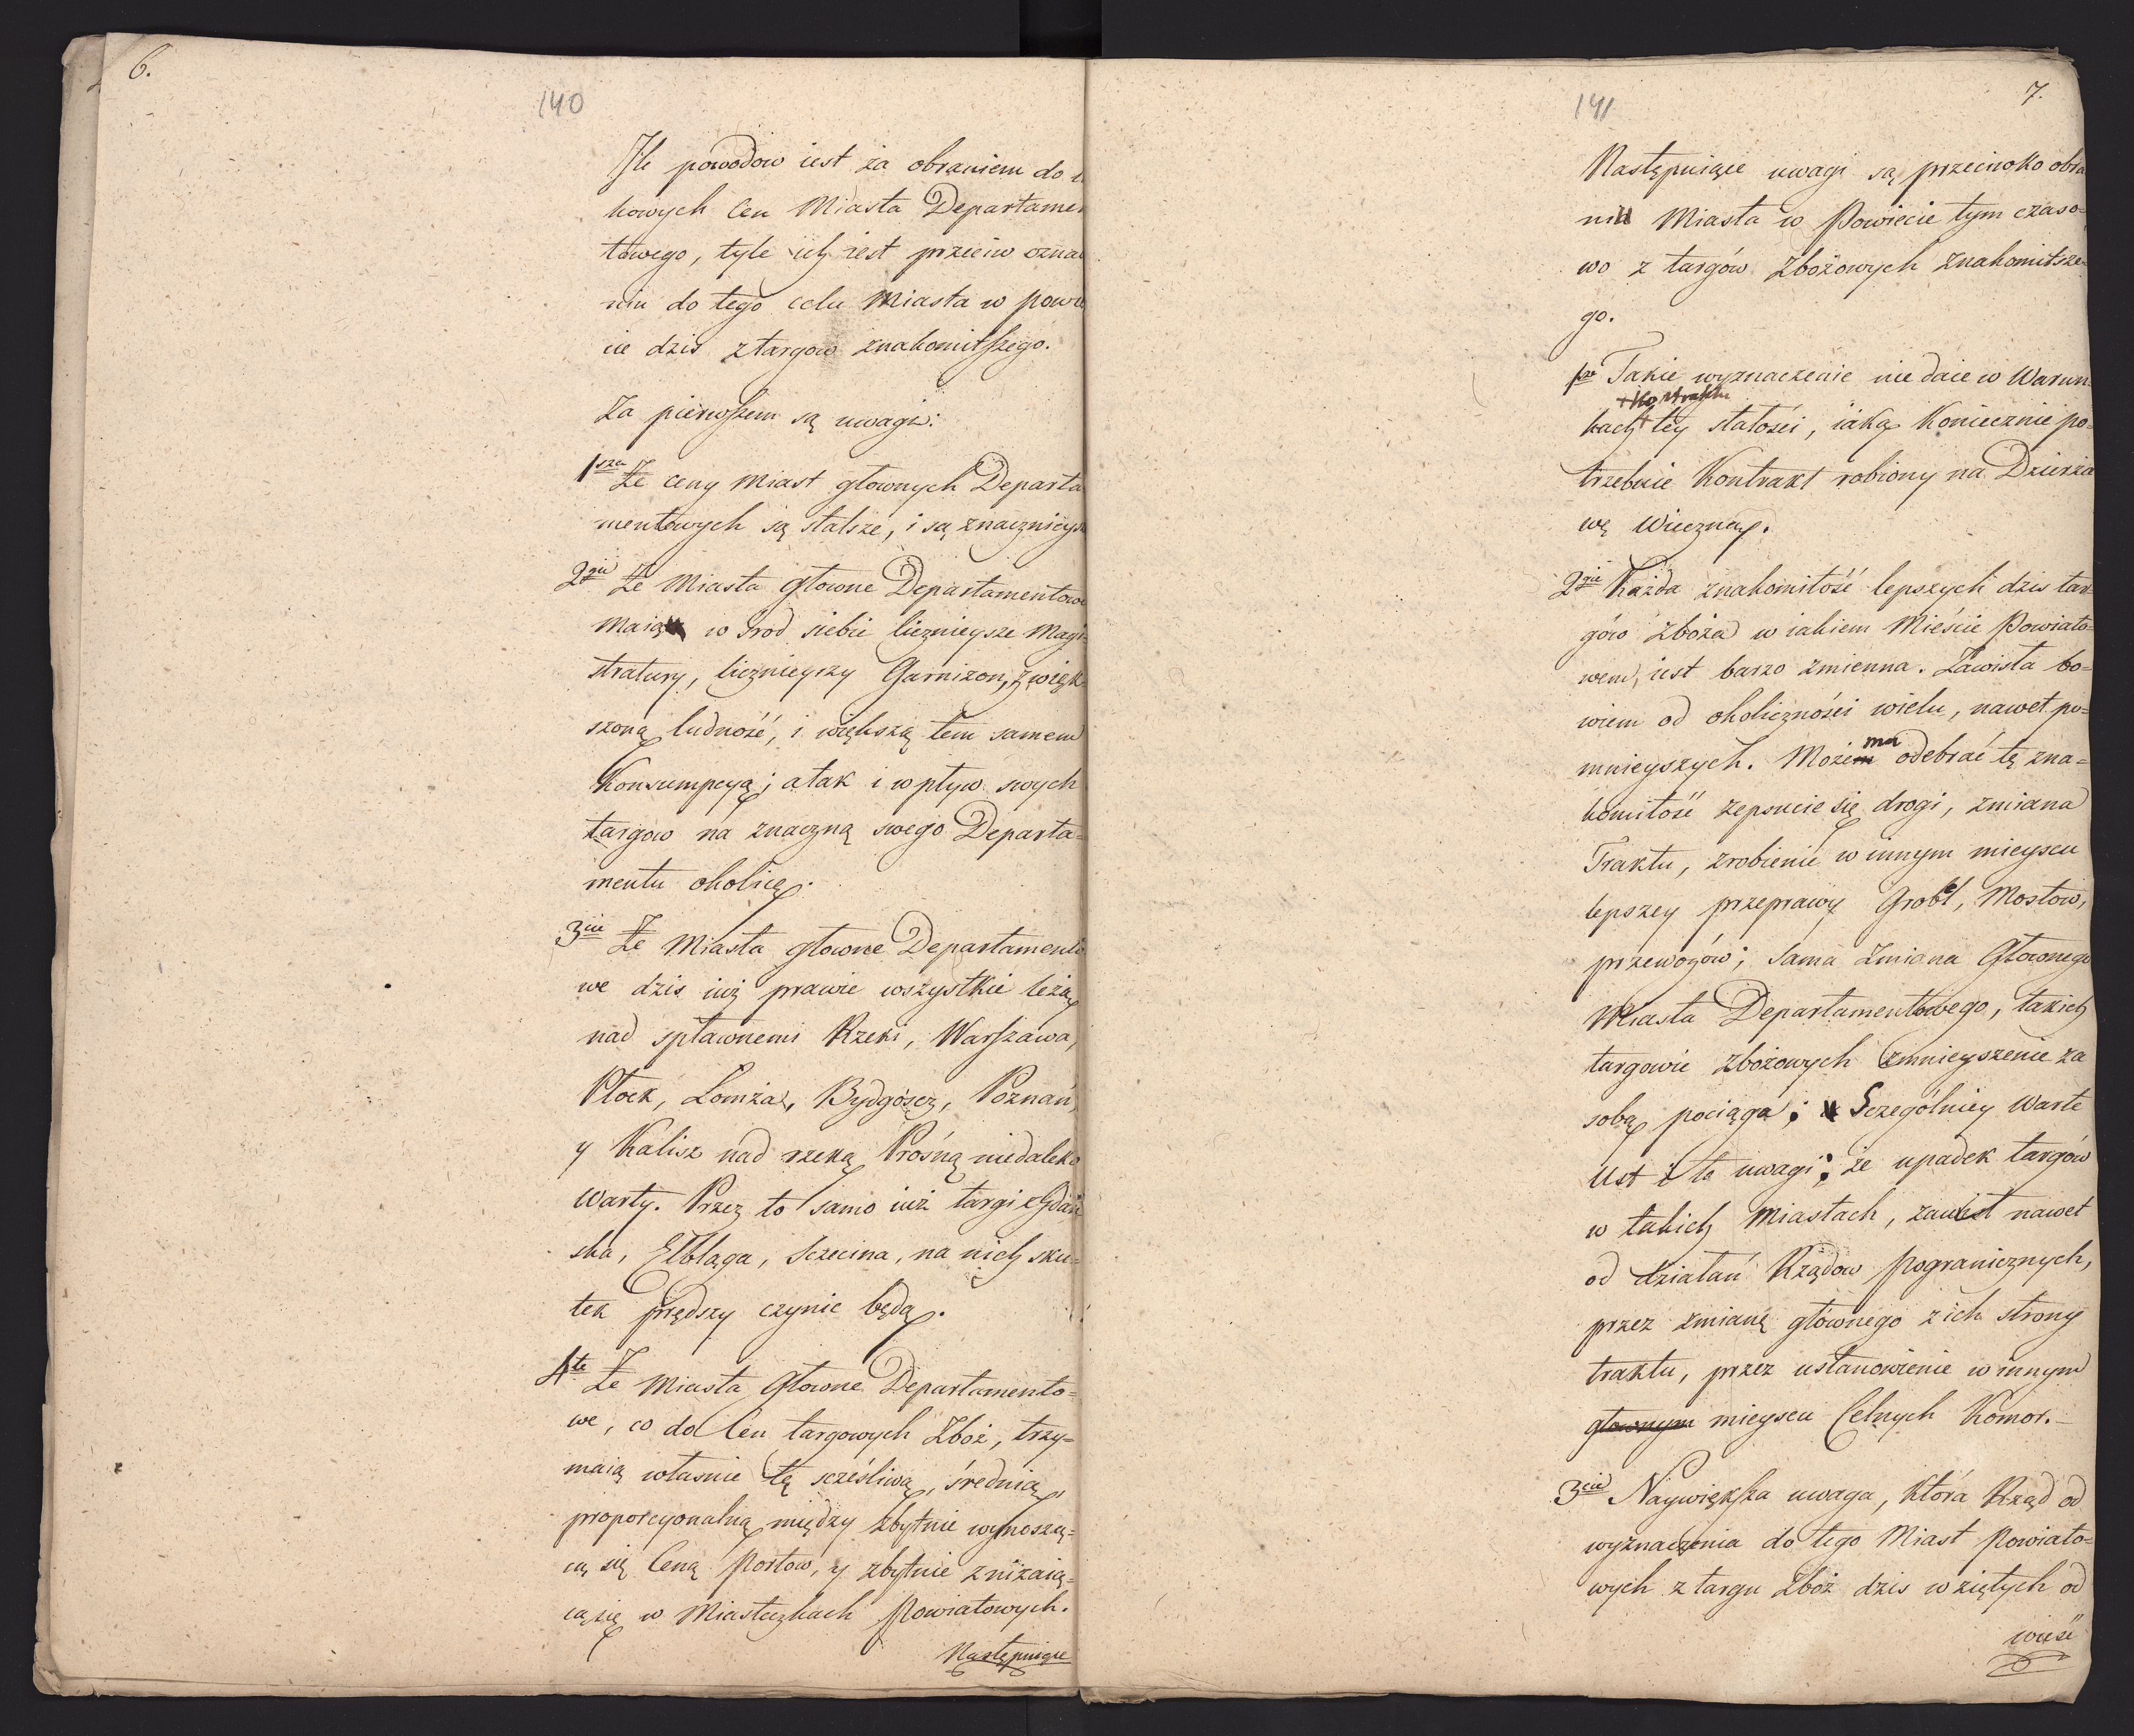 6.
140
Ile powodow iest za obraniem do
kowych Cen Miasta Departamen
towego, tyle ich iest przeciw ozna
niu do tego celu Miasta w powie
cie dzis z targow znakomitszego.
Za pierwszem są uwagi:
1sza Że ceny miast głownych Departa
mentowych są stalsze, i są znacznieysze
2gie Że Miasta głowne Departamentowe
maią w srod siebie licznieysze Magi
stratury, licznieyszy Garnizon, zwięk-
szoną ludność, i większą tem samem
Konsumpcyą; a tak i wpływ swych
targow na znaczną swego Departa=
mentu okolicę.
3cie Że Miasta głowne Departamento
we dzis iuż prawie wszystkie leżą
nad spławnemi Rzeki, Warszawa,
Płock, Łomża, Bydgoszcz, Poznań,
y Kalisz nad rzeką Prósną niedaleko
Warty. Przez to samo iuż targi Gdań
ska, Elbląga, Sczecina, na nich sku=
tek prędszy czynic będą.
4te Że Miasta Głowne Departamento=
we, co do Cen targowych Zbóż, trzy=
maią własnie tę sczęśliwą, średnią,
proporcyonalną między zbytnie wynoszą=
cą się Ceną Portow, y zbytnie zniżaią=
cą się w Miasteczkach Powiatowych.
Następuiące
141
7.
Następuiące uwagi są przeciwko obra
niu Miasta w Powiecie tym czaso=
wo z targów zbożowych znakomitsze=
go.
1sze Takie wyznaczenie nie daie w Warun=
+ Kontraktu
kach + tey stałości, iaką Koniecznie po=
trzebuie Kontrakt robiony na Dzierża
wę Wieczną.
2gie Każda znakomitość lepszych dzis tar=
gów zboża w iakiem Mieście Powiato=
wem, iest barzo zmienna. Zawisła bo=
wiem od okoliczności wielu, nawet po=
mnieyszych. Może mu odebrać tę zna=
komitość zepsucie się drogi, zmiana
Traktu, zrobienie w innym mieyscu
lepszey przeprawy Grobel, Mostow,
przewozów; sama zmiana Głownego
Miasta Departamentowego, takich
targowie zbożowych zmnieyszenie za
sobą pociąga; Sczególniey warte
iest i te uwagi; że upadek targów
w takich Miastach, zawisł nawet
od działań Rządow pogranicznych,
przez zmianę głównego z ich strony
traktu, przez ustanowienie w innym
głownym mieyscu Celnych Komor.-
3cie Naywiększa uwaga, która Rząd od
wyznaczenia do tego Miast Powiato=
wych z targu Zbóż dzis wziętych od
wieść